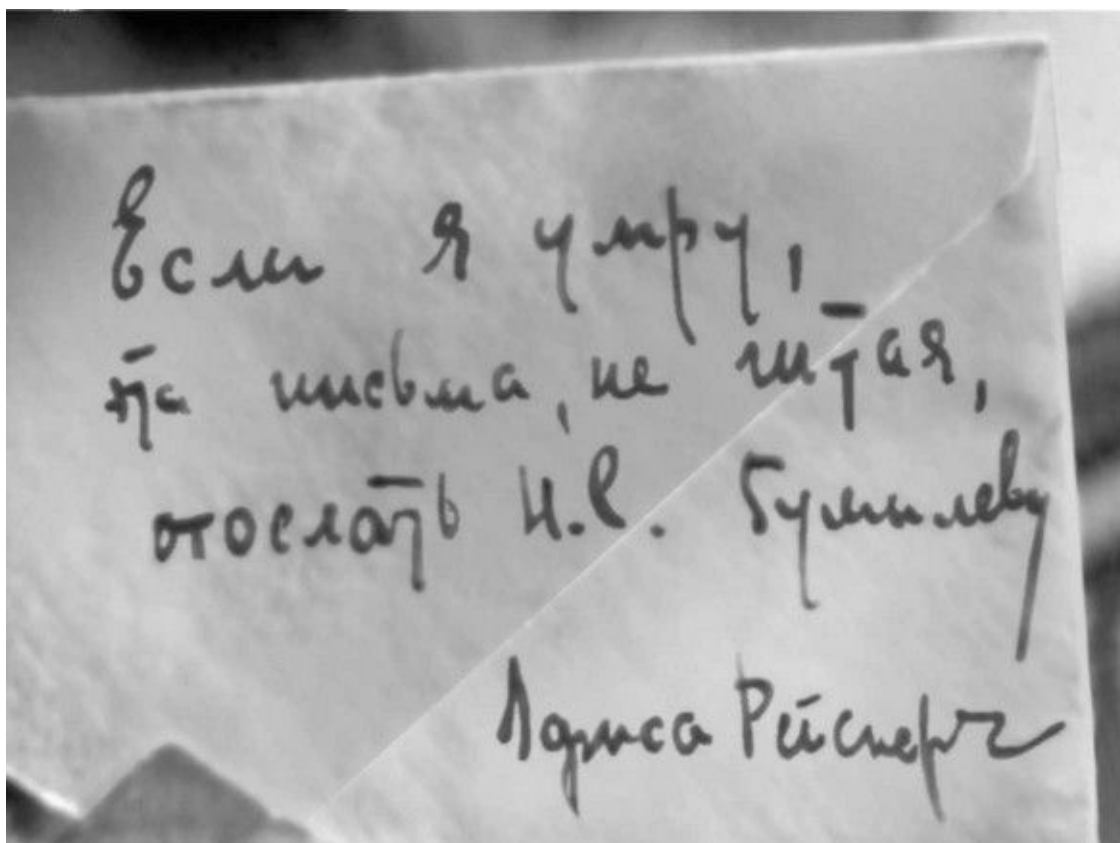 Если я умру,
та письма, не читая,
отослать Н.С. Гумилеву
Лариса Рейснер